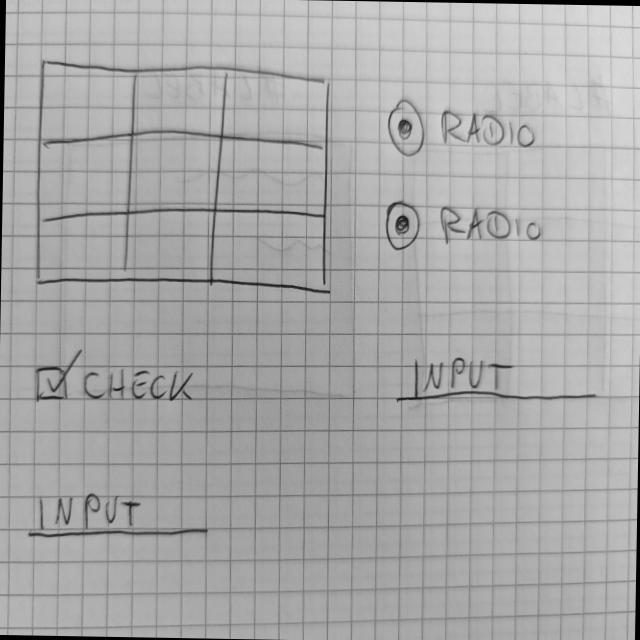 RADIO
RADIO
CHECK
INPUT
INPUT